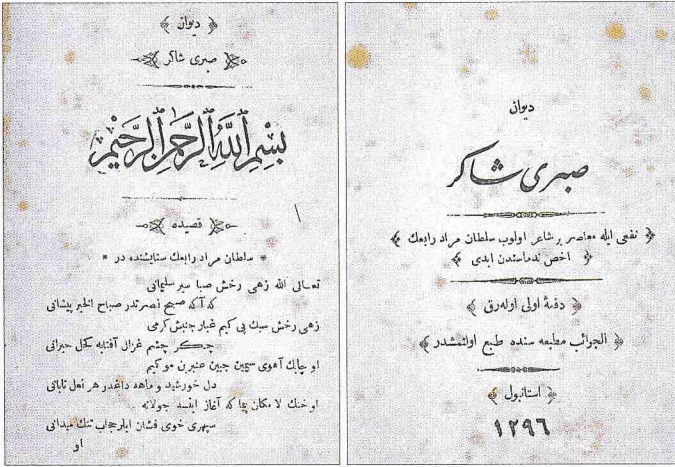 ديوان
صبرى شاكر
نفعى ايله معاصر بر شاعر اولوب سلطان مراد رابعك
اخص ندماسندن ايدى
دفعهٔ اولى اوله رق
الجوائب مطبعه سنده طبع اولنمشدر
استانبول
١٢٩٦
ديوان
صبرى شاكر
بسم الله الرحمن الرحيم
قصيده
سلطان مراد رابعك ستايشنده در
تعالى الله زهى رخش صبا سير سليمانى
كه آكه صبح نصرتدر صباح الخير پيشانى
زهى رخش سبك پى كيم غبار جنبش كرمى
چكر چشم غزال آفتابه كحل حيرانى
او چابك آهوى سيمين جبين عنبرين مو كيم
دل خورشيد و ماهه داغدر هر نعل تابانى
او خنك لا مكان پيما كه آغاز ايلسه جولانه
سپهرى خوى فشان ايلر حجاب تنك ميدانى
او